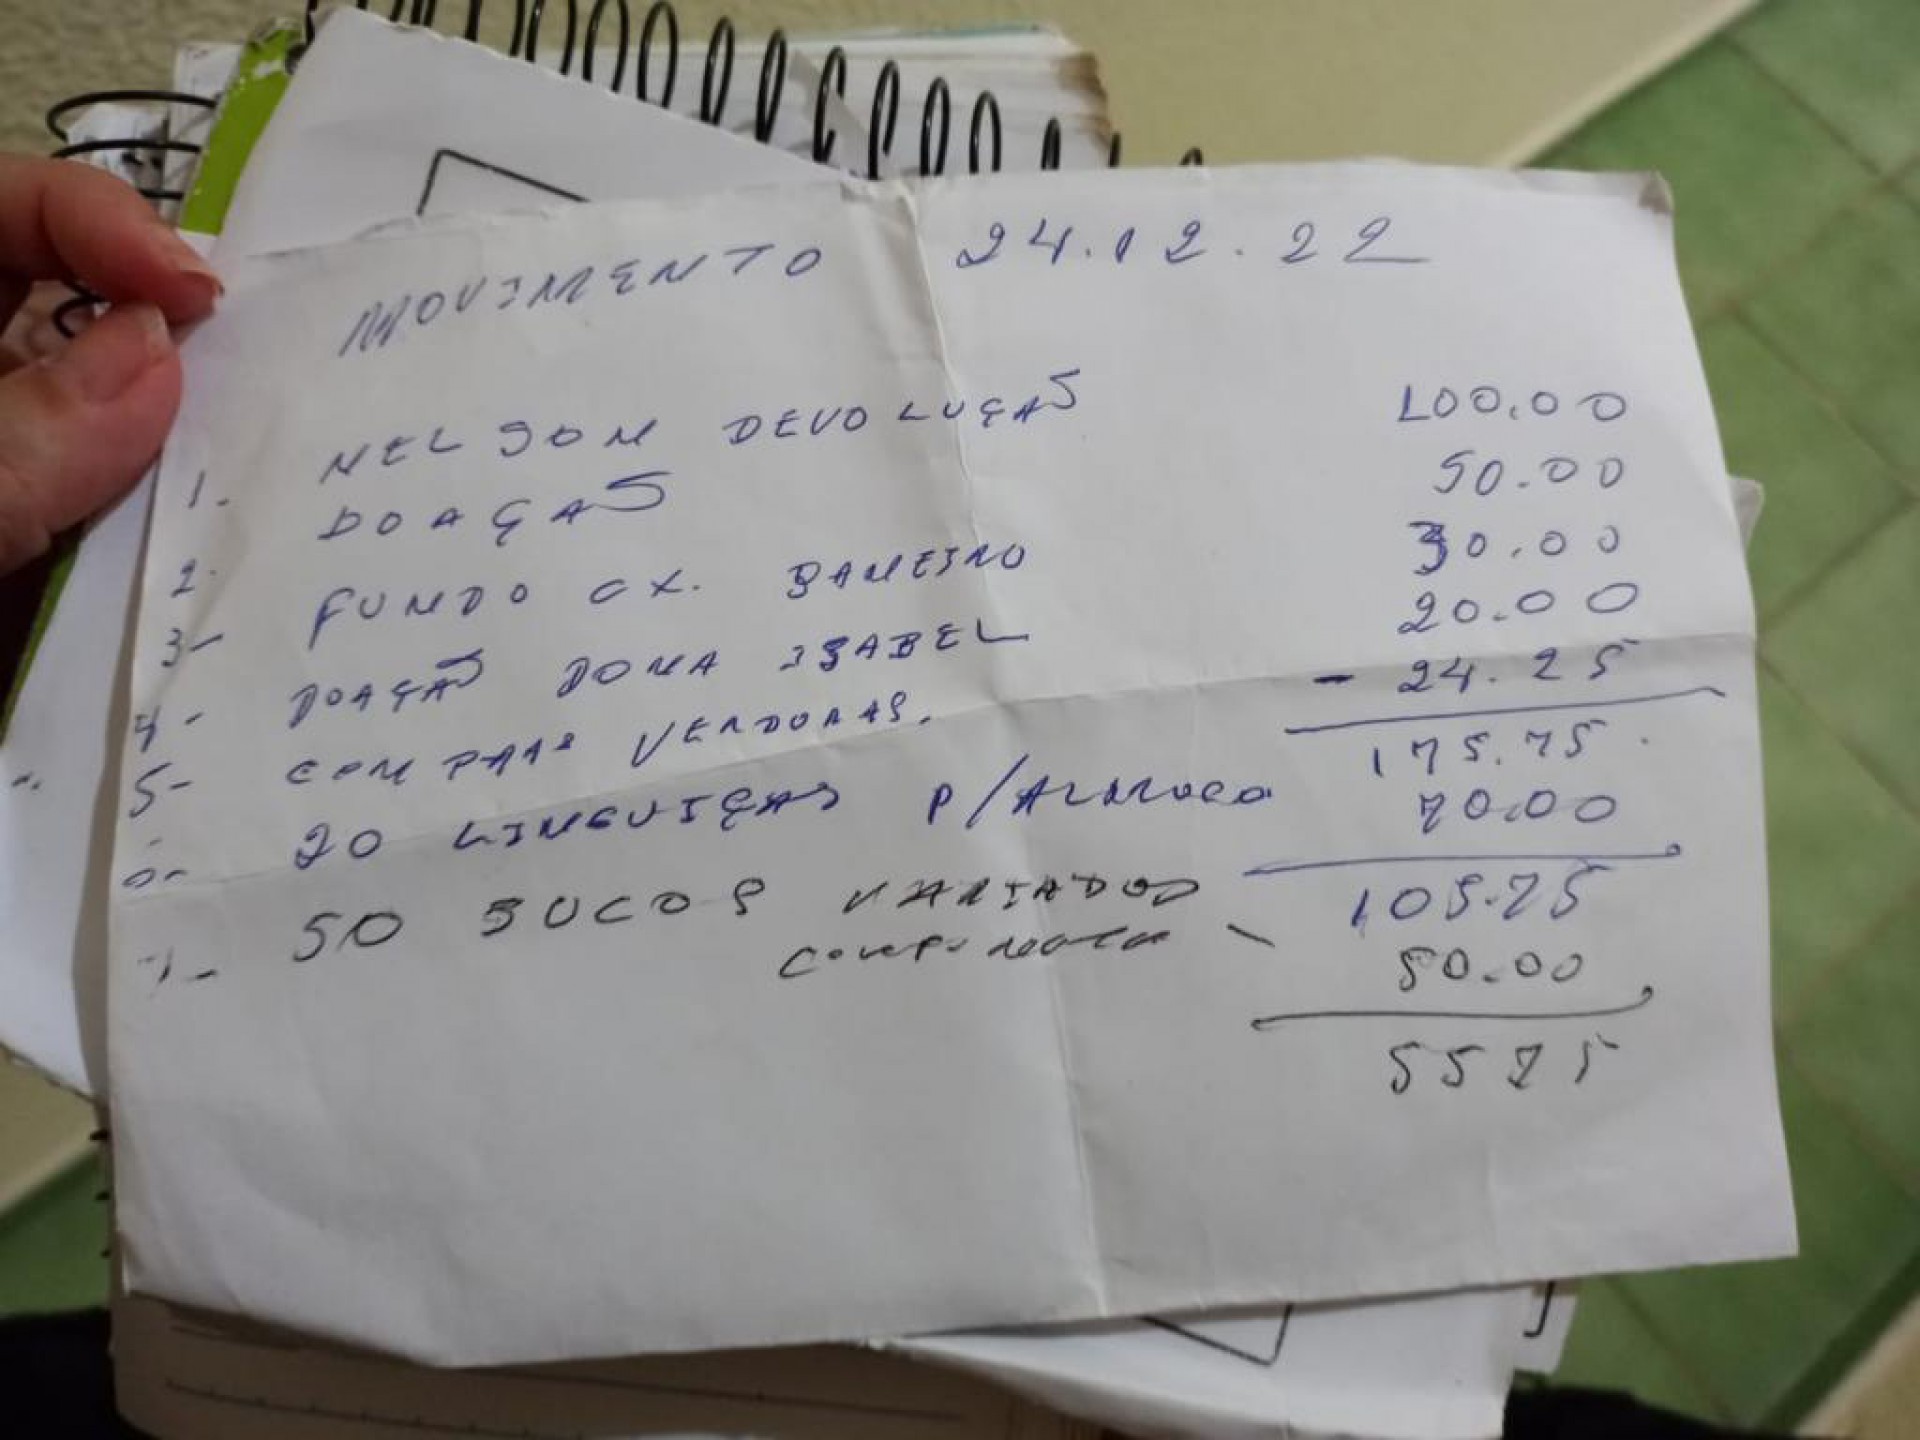 MOVIMENTO 24.12.22
1- NELSON DEVOLUÇAS 100.00
2- DOAÇAS 50.00
3- FUNDO CX. 30.00
4- DOAÇAS DONA ISABEL 20.00
5- COMPRAS VERDURAS. - 24.25
175.75
20 LINGUIÇAS P/ALMOÇO 70.00
105.75
50 SUCOS VARIADOS
- 50.00
5575